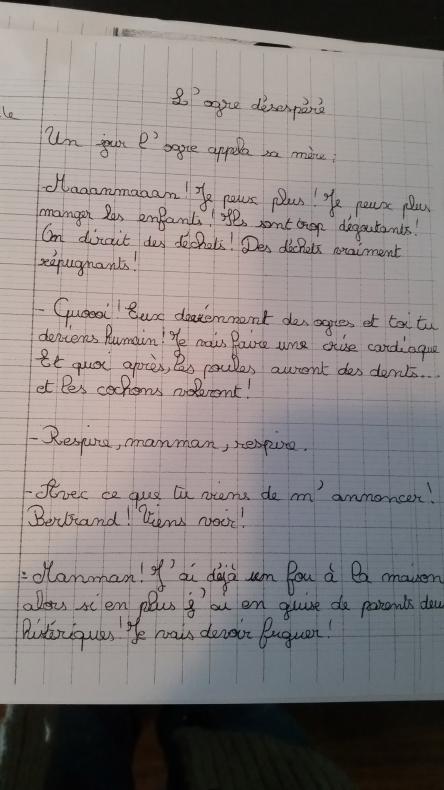 le
L'ogre désespéré
Un jour l'ogre appela sa mère :
- Maaanmaaan ! Je peux plus ! Je peux plus
manger les enfants ! Ils sont trop dégoutants !
On dirait des déchets ! Des déchets vraiment
répugnants !
- Quoooi ! Eux deviennent des ogres et toi tu
deviens humain ! Je vais faire une crise cardiaque
Et quoi après, les poules auront des dents...
et les cochons voleront !
- Respire, manman, respire.
- Avec ce que tu viens de m'annoncer !
Bertrand ! Viens voir !
- Manman ! J'ai déjà un fou à la maison
alors si en plus j'ai en guise de parents deu
histériques ! Je vais devoir fuguer !